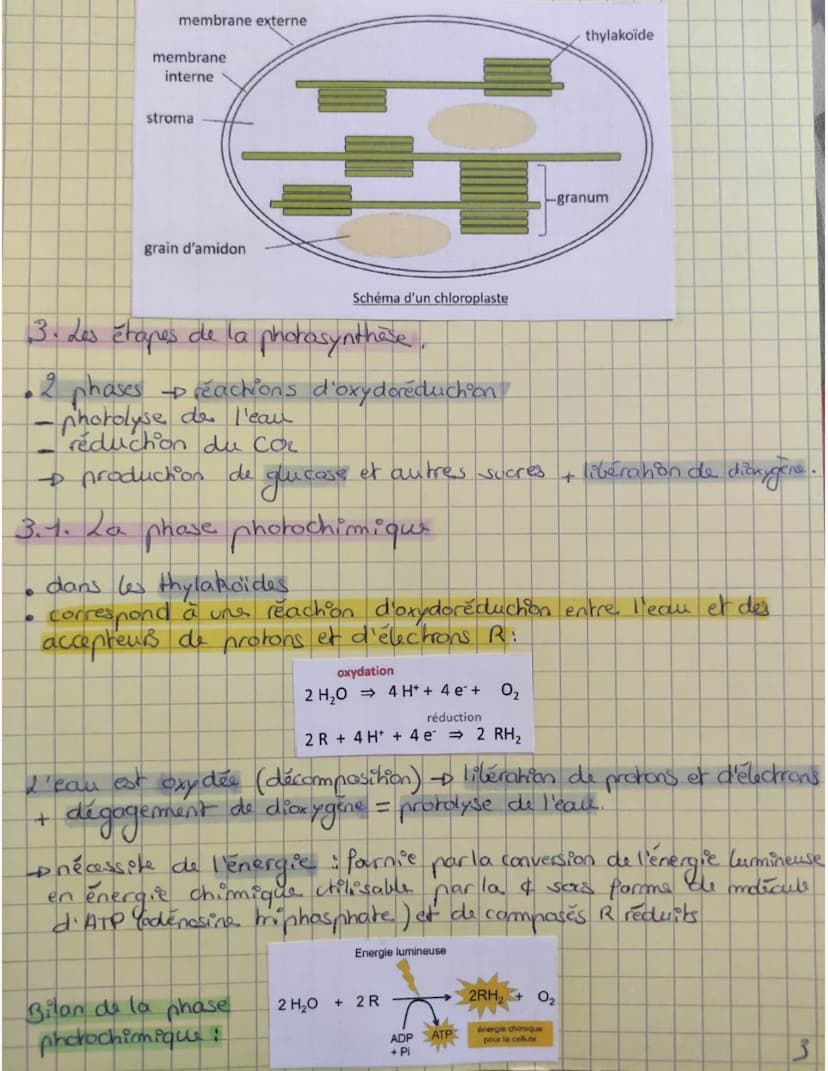 membrane externe
thylakoïde
membrane
interne
stroma
granum
grain d'amidon
Schéma d'un chloroplaste
3. Les étapes de la photosynthèse.
• 2 phases → réactions d'oxydoréduction
- photolyse de l'eau
- réduction du CO2
→ production de glucose et autres sucres + libération de dioxygène.
3.1. La phase photochimique
• dans les thylakoïdes
• correspond à une réaction d'oxydoréduction entre l'eau et des
accepteurs de protons et d'électrons R :
oxydation
2 H₂O ⇒ 4 H⁺ + 4 e⁻ + O₂
réduction
2 R + 4 H⁺ + 4 e⁻ ⇒ 2 RH₂
L'eau est oxydée (décomposition) → libération de protons et d'électrons
+ dégagement de dioxygène = protolyse de l'eau.
→ nécessite de l'énergie : fournie par la conversion de l'énergie lumineuse
en énergie chimique utilisable par la ¢ sous forme de molécule
d'ATP (adénosine triphosphate) et de composés R réduits
Energie lumineuse
2 H₂O + 2 R → 2RH₂ + O₂
ADP
+ Pi
ATP
énergie chimique
pour la cellule
Bilan de la phase
photochimique :
3